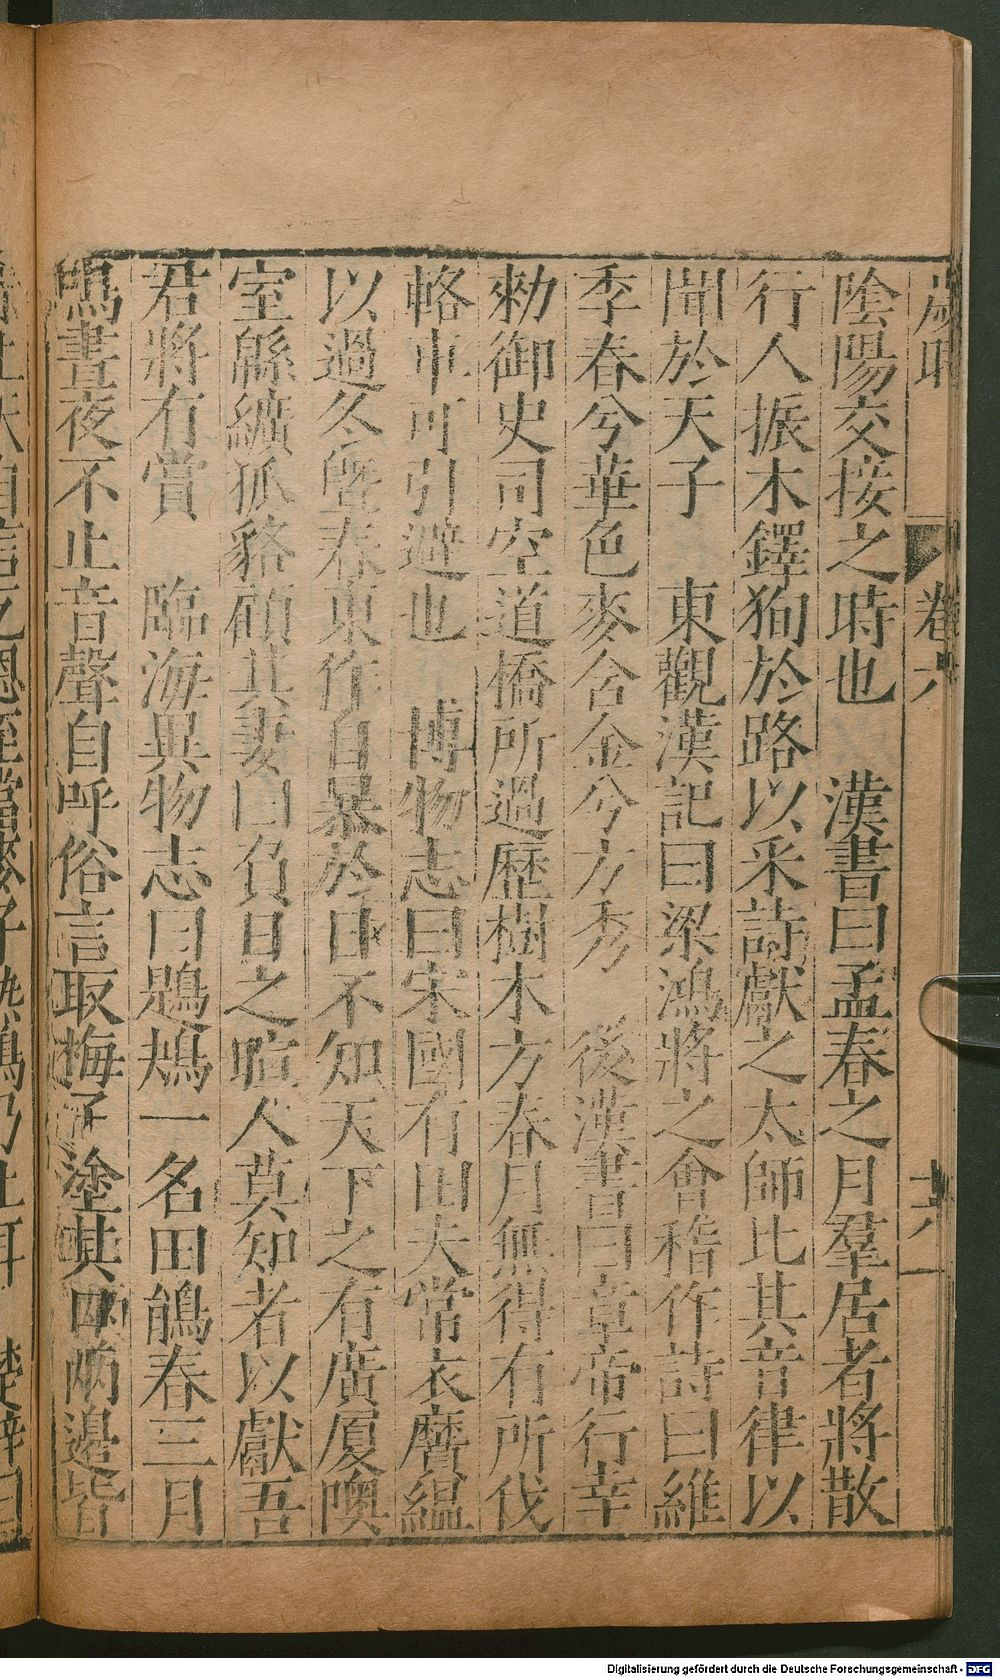 歲 卷六 十六
陰陽交接之時也 漢書曰孟春之月羣居者將散
行人振木鐸狥於路以采詩獻之太師比其音律以
聞於天子 東觀漢記曰梁鴻將之會稽作詩曰維
季春兮華色麥含金兮方秀 後漢書曰章帝行幸
勑御史司空道橋所過歷樹木方春月無得有所伐
輅車可引避也 博物志曰宋國有田夫常衣黂縕
以過冬曁春東作自暴於日不知天下之有廣厦噢
室緜纊狐貉顧其妻曰負日之暄人莫知者以獻吾
君將有賞 臨海異物志曰鶗鴂一名田鵑春三月
鳴晝夜不止音聲自呼俗言取梅子塗其 兩邊皆
Digitalisierung gefördert durch die Deutsche Forschungsgemeinschaft - DFG